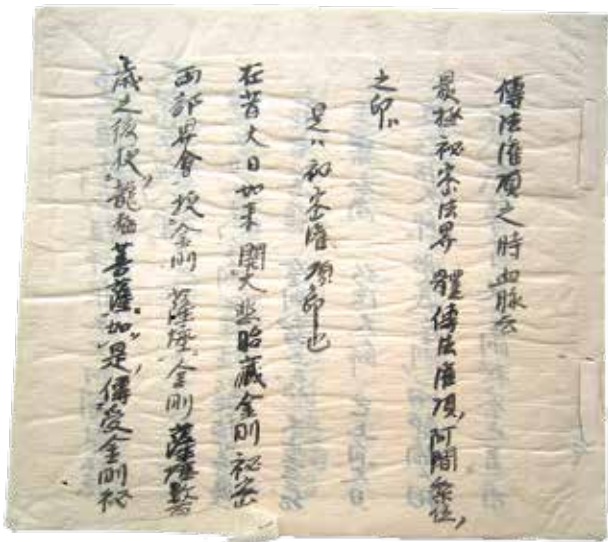 傳法灌頂之時血脉云
最極秘密法界體傳法灌頂阿闍梨位
之印
是ハ初重灌頂印也
在昔大日如来開大悲胎藏金剛秘密
両部界會授金剛薩埵金剛薩埵数百
歳之後授龍猛菩薩如是傳受金剛秘